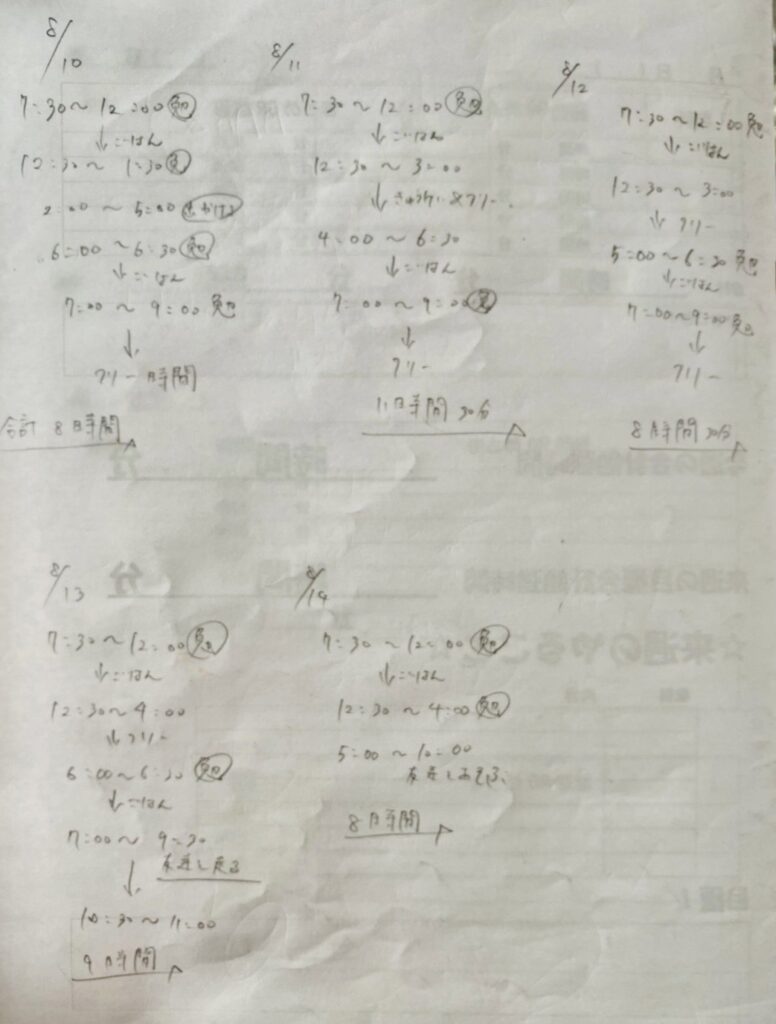 8/10
7:30〜12:00 勉
↓ごはん
12:30〜1:30 勉
2:00〜5:00
6:00〜6:30 勉
↓ごはん
7:00〜9:00 勉
↓
フリー時間
合計 8時間
8/11
7:30〜12:00 勉
↓ごはん
12:30〜3:00
↓きゅうけい&フリー
4:00〜6:30
↓ごはん
7:00〜9:00 勉
↓
フリー
11時間30分
8/12
7:30〜12:00 勉
↓ごはん
12:30〜3:00
↓フリー
5:00〜6:30 勉
↓ごはん
7:00〜9:00 勉
↓
フリー
8時間30分
8/13
7:30〜12:00 勉
↓ごはん
12:30〜4:00
↓フリー
6:00〜6:30 勉
↓ごはん
7:00〜9:30
友達と
↓
10:30〜11:00
9時間
8/14
7:30〜12:00 勉
↓ごはん
12:30〜4:00 勉
5:00〜10:00
友達とあそぶ
8時間
今週の合計勉強時間 時間 分
来週の目標合計勉強時間 時間 分
☆来週のやること
目標!